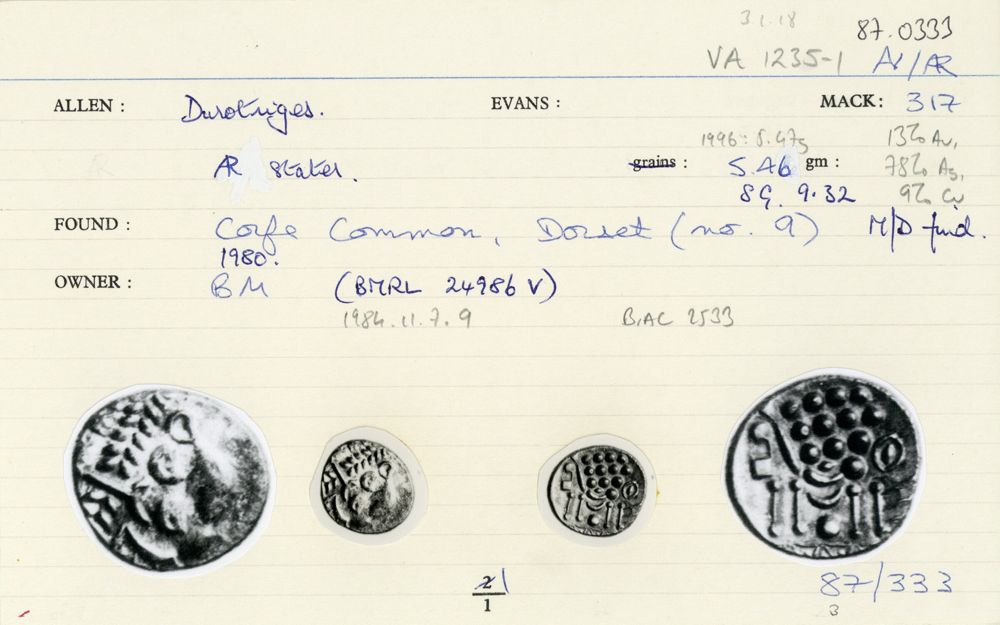 31.18
87.0333
VA 1235-1 AV/AR
ALLEN : Durotriges. EVANS : MACK: 317
AR Stater. grains : 5.46 gm :
1996: 5.47g
13% Au,
78% Ag,
9% Cu
SG. 9.32
FOUND : Corfe Common, Dorset (no. 9) M/D find.
1980.
OWNER : BM (BMRL 24986 V)
1984.11.7.9 BIAC 2533
2/1
1
87/333
3